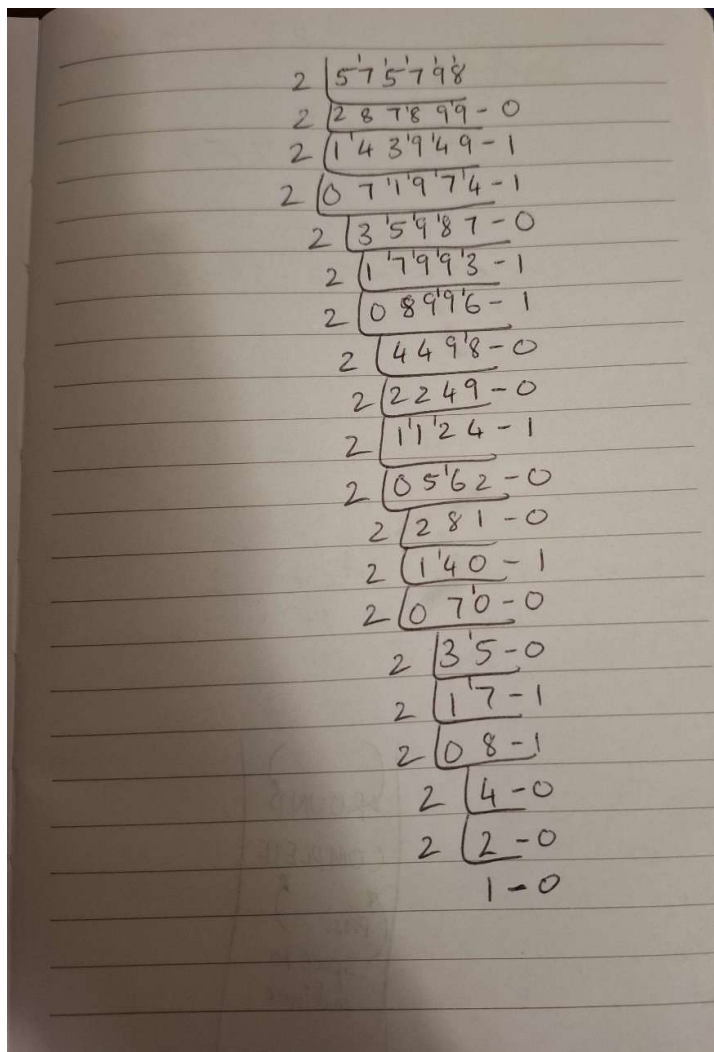 2 5 7 5 7 9 8
2 2 8 7 8 9 9 - 0
2 1 4 3 9 4 9 - 1
2 0 7 1 9 7 4 - 1
2 3 5 9 8 7 - 0
2 1 7 9 9 3 - 1
2 0 8 9 9 6 - 1
2 4 4 9 8 - 0
2 2 2 4 9 - 0
2 1 1 2 4 - 1
2 0 5 6 2 - 0
2 2 8 1 - 0
2 1 4 0 - 1
2 0 7 0 - 0
2 3 5 - 0
2 1 7 - 1
2 0 8 - 1
2 4 - 0
2 2 - 0
1 - 0